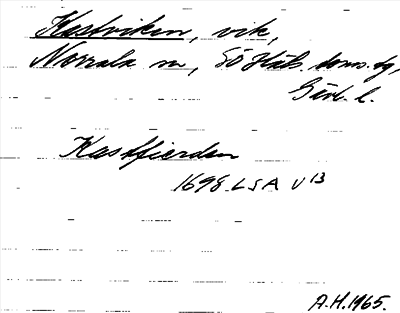 Kastviken, vik,
Norrala sn, Sö Häls. doms. tg,
Gävl. l.
Kastfierden
1698 LSA V 13
A.H. 1965.